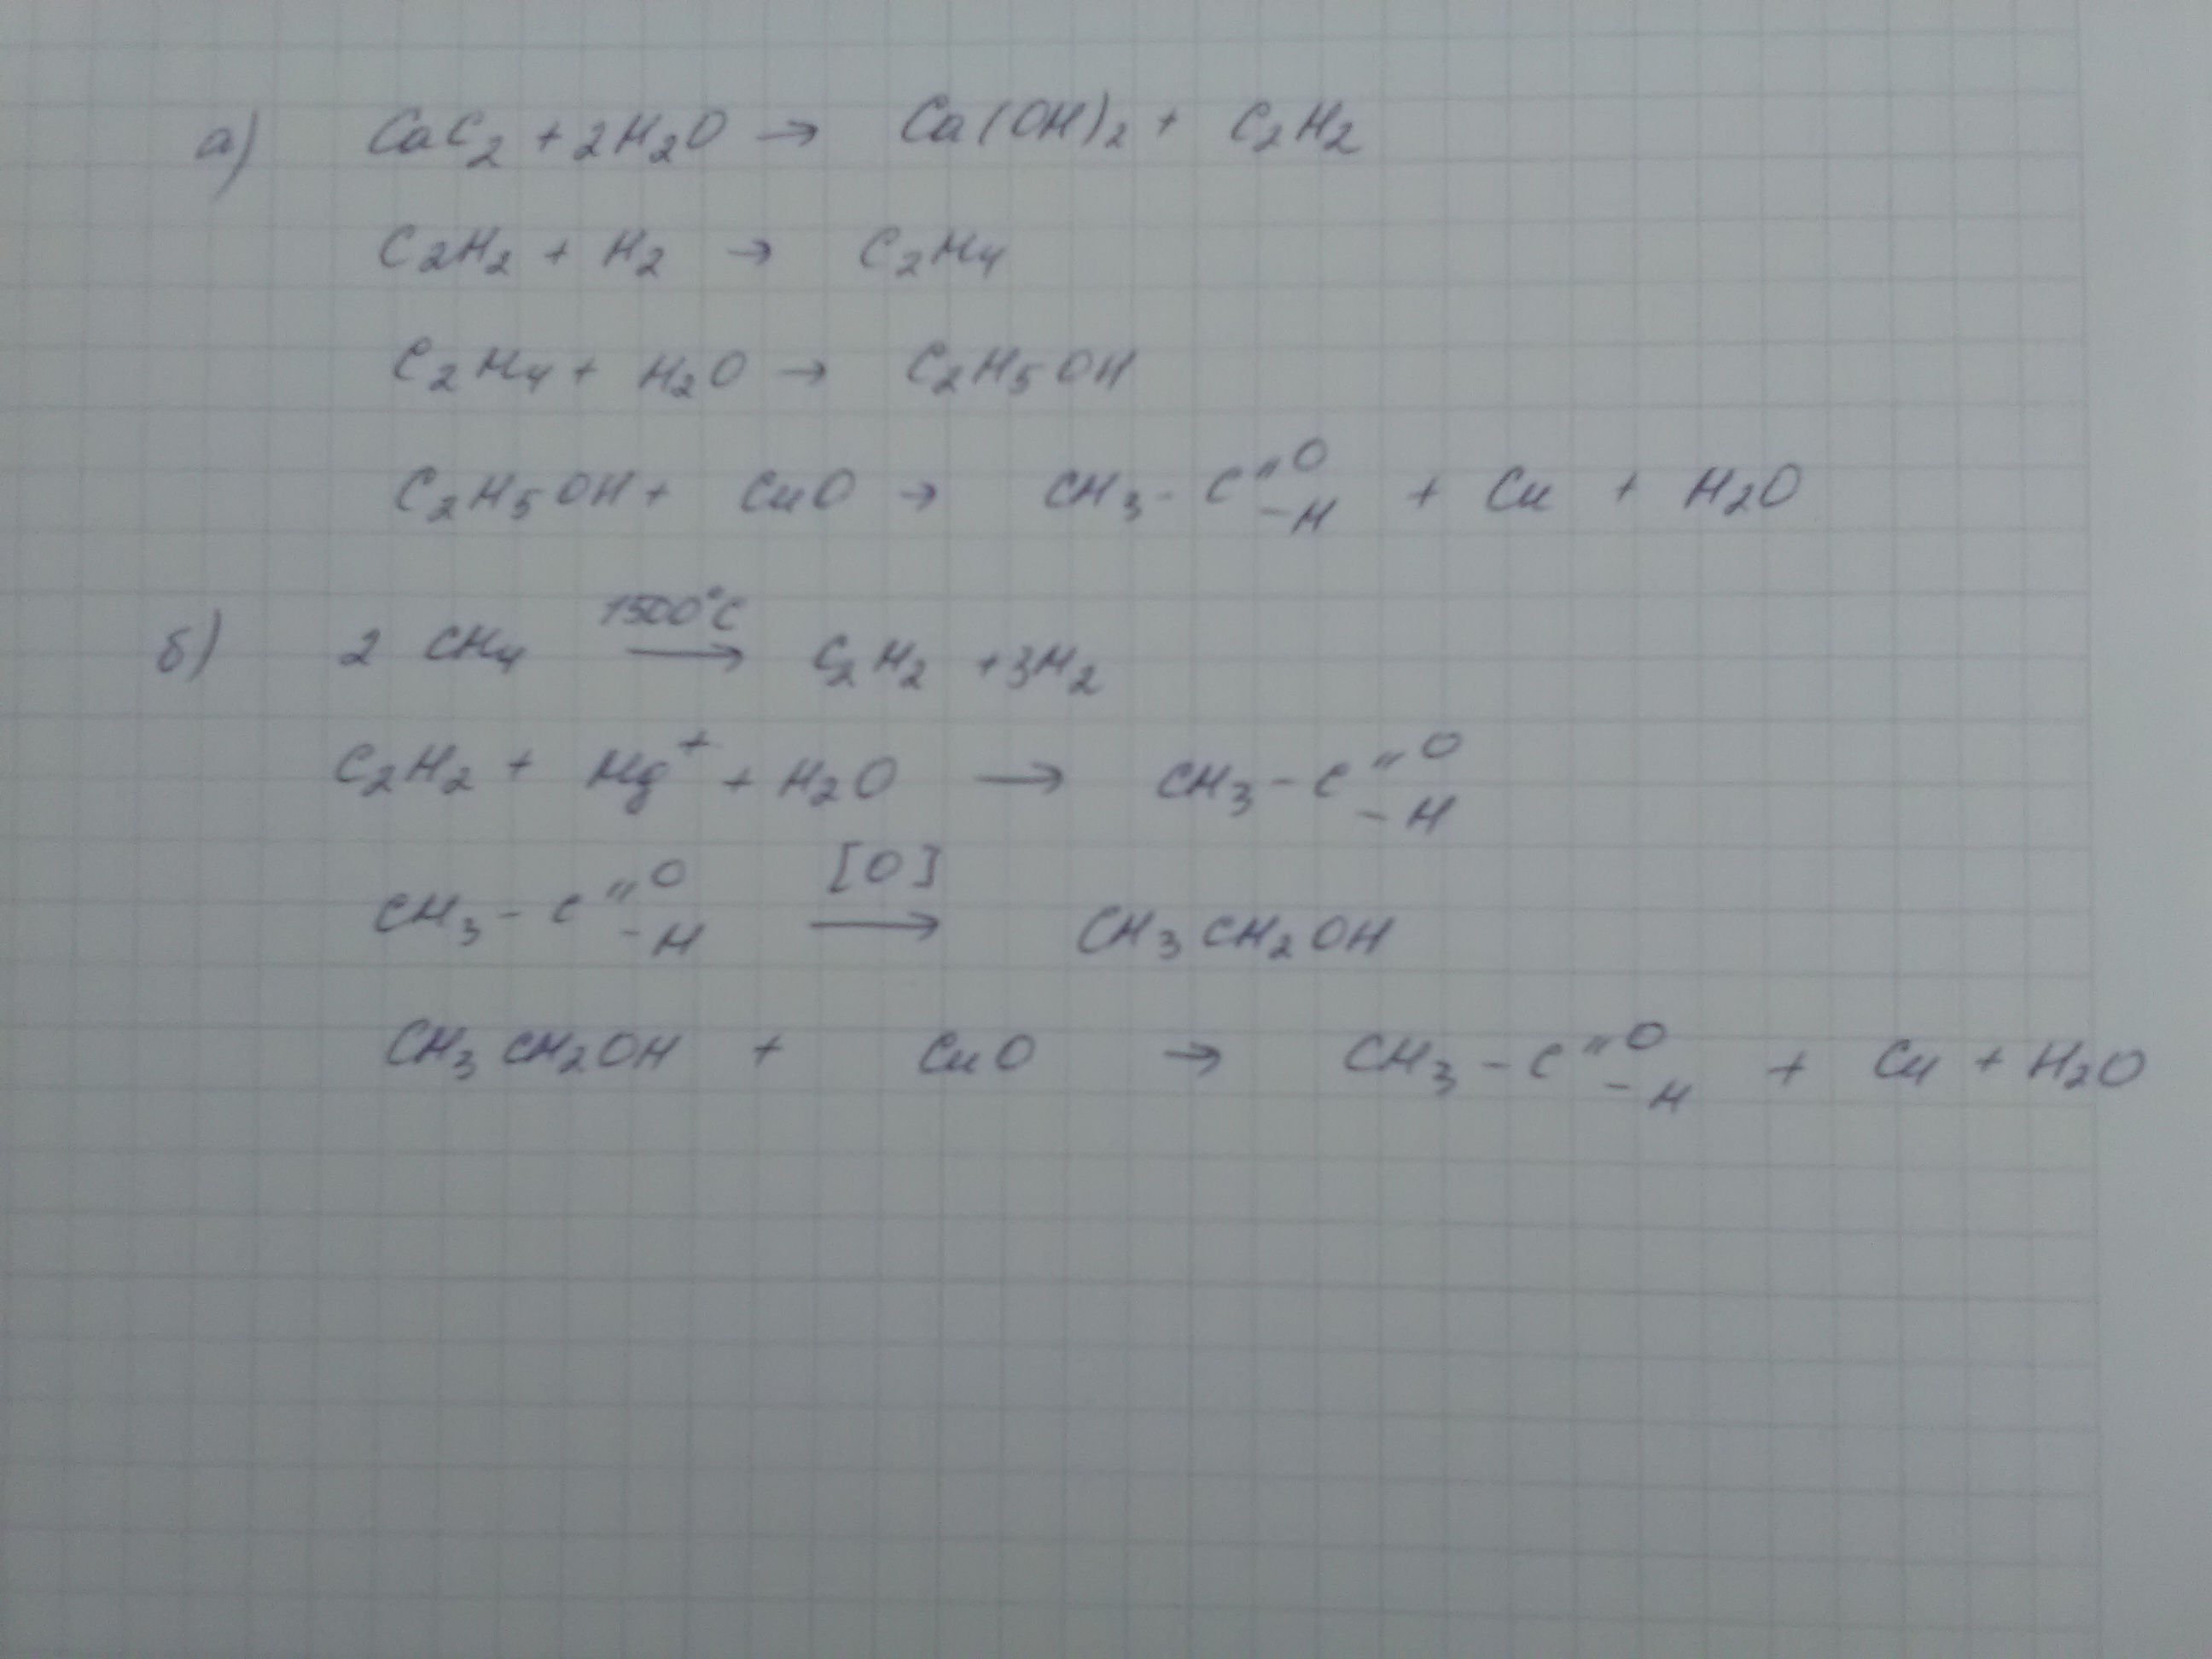 а) CaC₂ + 2H₂O → Ca(OH)₂ + C₂H₂
C₂H₂ + H₂ → C₂H₄
C₂H₄ + H₂O → C₂H₅OH
C₂H₅OH + CuO → CH₃ - C =O -H + Cu + H₂O
б) 2 CH₄ 1500°C → C₂H₂ + 3H₂
C₂H₂ + Hg⁺ + H₂O → CH₃ - C =O -H
CH₃ - C =O -H [O] → CH₃CH₂OH
CH₃CH₂OH + CuO → CH₃ - C =O -H + Cu + H₂O